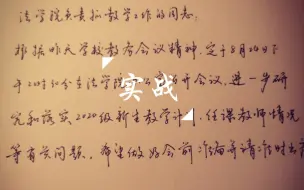 法学院负责抓教学工作的同志:
根据昨天学校教务会议精神,定于8月26日下
午2时30分在法学院 召开会议,进一步研
究和落实2020级新生教学计 、任课教师情况
等有关问题。希望做好会前准备并请准时出席
实战